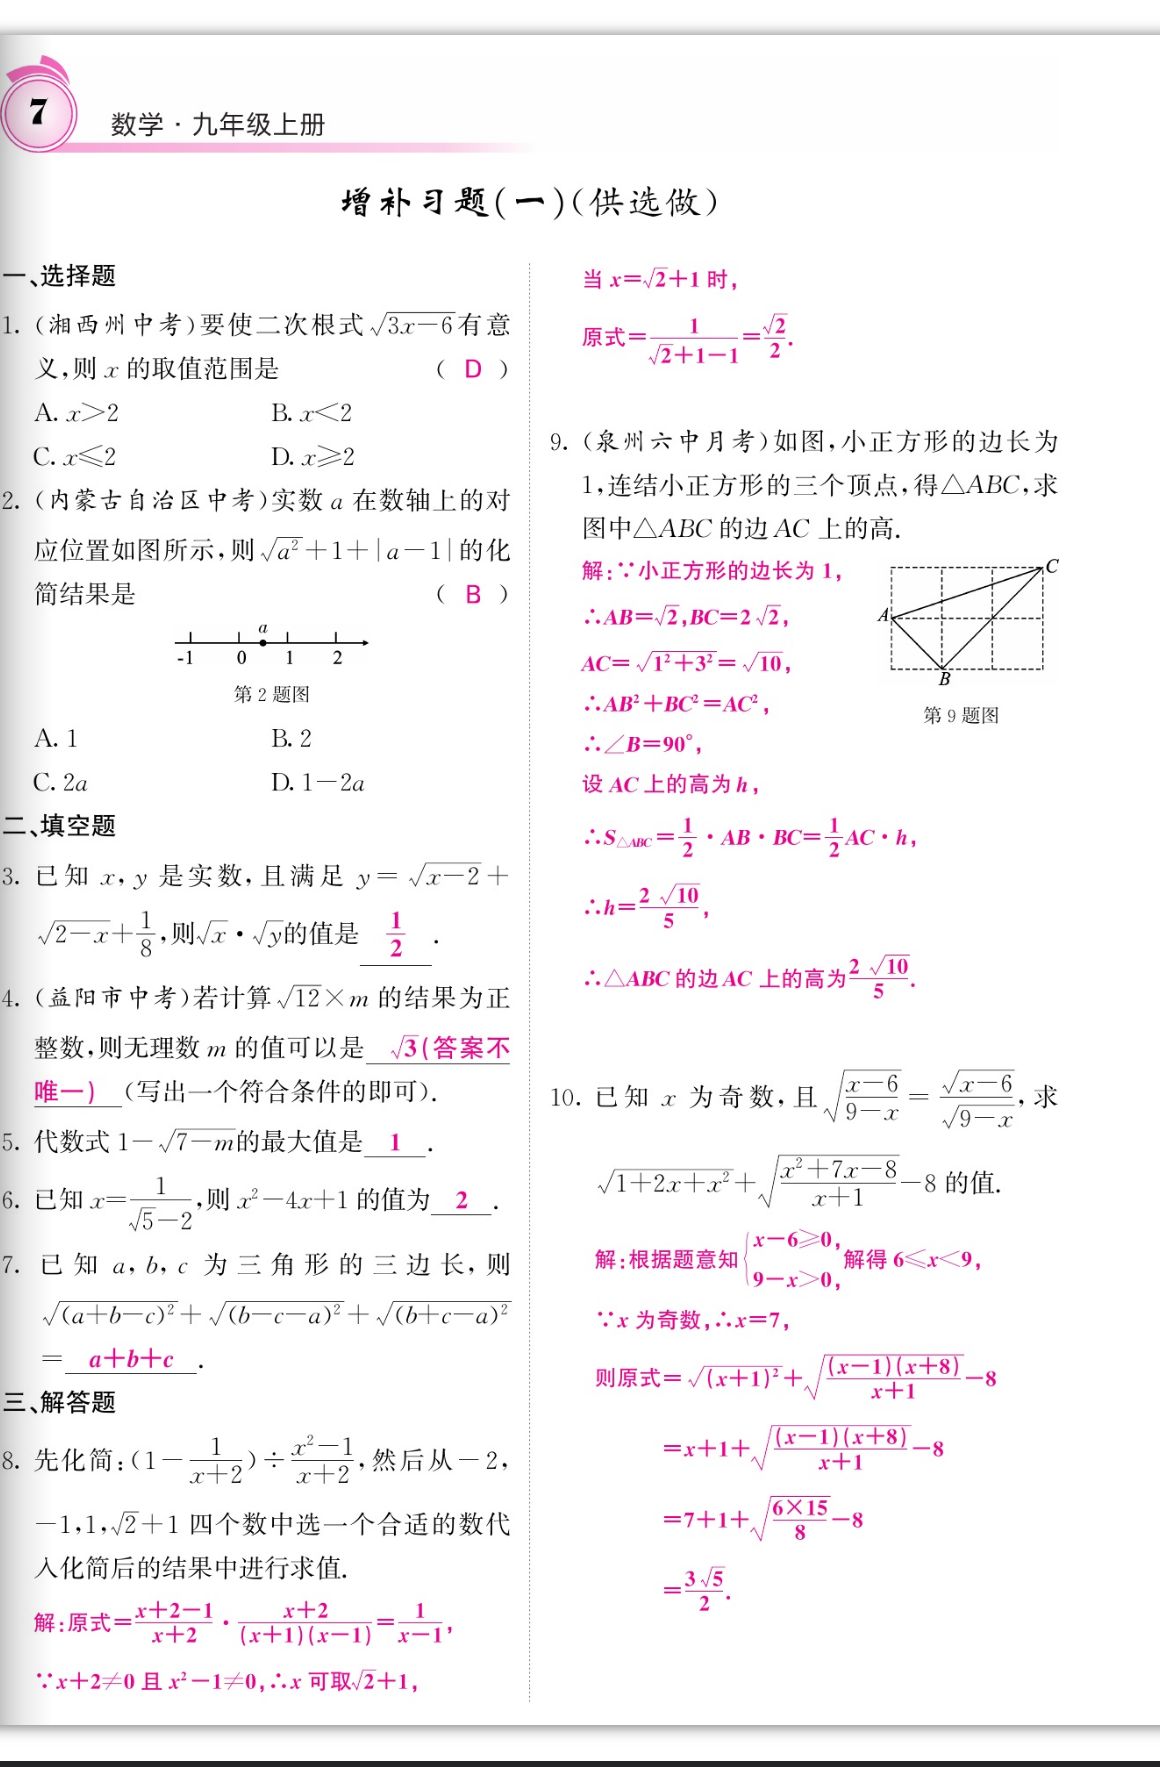 7
数学·九年级上册
增补习题(一)(供选做)
一、选择题
1. (湘西州中考)要使二次根式√(3x-6)有意
义,则 x 的取值范围是 ( D )
A. x>2 B. x<2
C. x≤2 D. x≥2
2. (内蒙古自治区中考)实数 a 在数轴上的对
应位置如图所示,则√(a²)+1+|a-1|的化
简结果是 ( B )
a
-1 0 1 2
第 2 题图
A. 1 B. 2
C. 2a D. 1-2a
二、填空题
3. 已知 x, y 是实数, 且满足 y=√(x-2)+
√(2-x)+1/8,则√x·√y的值是 1/2 .
4. (益阳市中考)若计算√12×m 的结果为正
整数,则无理数 m 的值可以是 √3(答案不
唯一) (写出一个符合条件的即可).
5. 代数式 1-√(7-m)的最大值是 1 .
6. 已知 x=1/(√5-2),则 x²-4x+1 的值为 2 .
7. 已知 a, b, c 为三角形的三边长, 则
√((a+b-c)²)+√((b-c-a)²)+√((b+c-a)²)
= a+b+c .
三、解答题
8. 先化简:(1-1/(x+2))÷(x²-1)/(x+2),然后从-2,
-1,1,√2+1 四个数中选一个合适的数代
入化简后的结果中进行求值.
解:原式=(x+2-1)/(x+2)·(x+2)/((x+1)(x-1))=1/(x-1),
∵x+2≠0 且 x²-1≠0,∴x 可取√2+1,
当 x=√2+1 时,
原式=1/(√2+1-1)=√2/2.
9. (泉州六中月考)如图,小正方形的边长为
1,连结小正方形的三个顶点,得△ABC,求
图中△ABC 的边 AC 上的高.
解:∵小正方形的边长为 1,
∴AB=√2,BC=2√2,
AC=√(1²+3²)=√10,
∴AB²+BC²=AC²,
∴∠B=90°,
C
A
B
第 9 题图
设 AC 上的高为 h,
∴S△ABC=1/2·AB·BC=1/2 AC·h,
∴h=2√10/5,
∴△ABC 的边 AC 上的高为2√10/5.
10. 已知 x 为奇数, 且√((x-6)/(9-x))=√(x-6)/√(9-x), 求
√(1+2x+x²)+√((x²+7x-8)/(x+1))-8 的值.
解:根据题意知{x-6≥0, 9-x>0, 解得 6≤x<9,
∵x 为奇数,∴x=7,
则原式=√((x+1)²)+√((x-1)(x+8)/(x+1))-8
=x+1+√((x-1)(x+8)/(x+1))-8
=7+1+√(6×15/8)-8
=3√5/2.